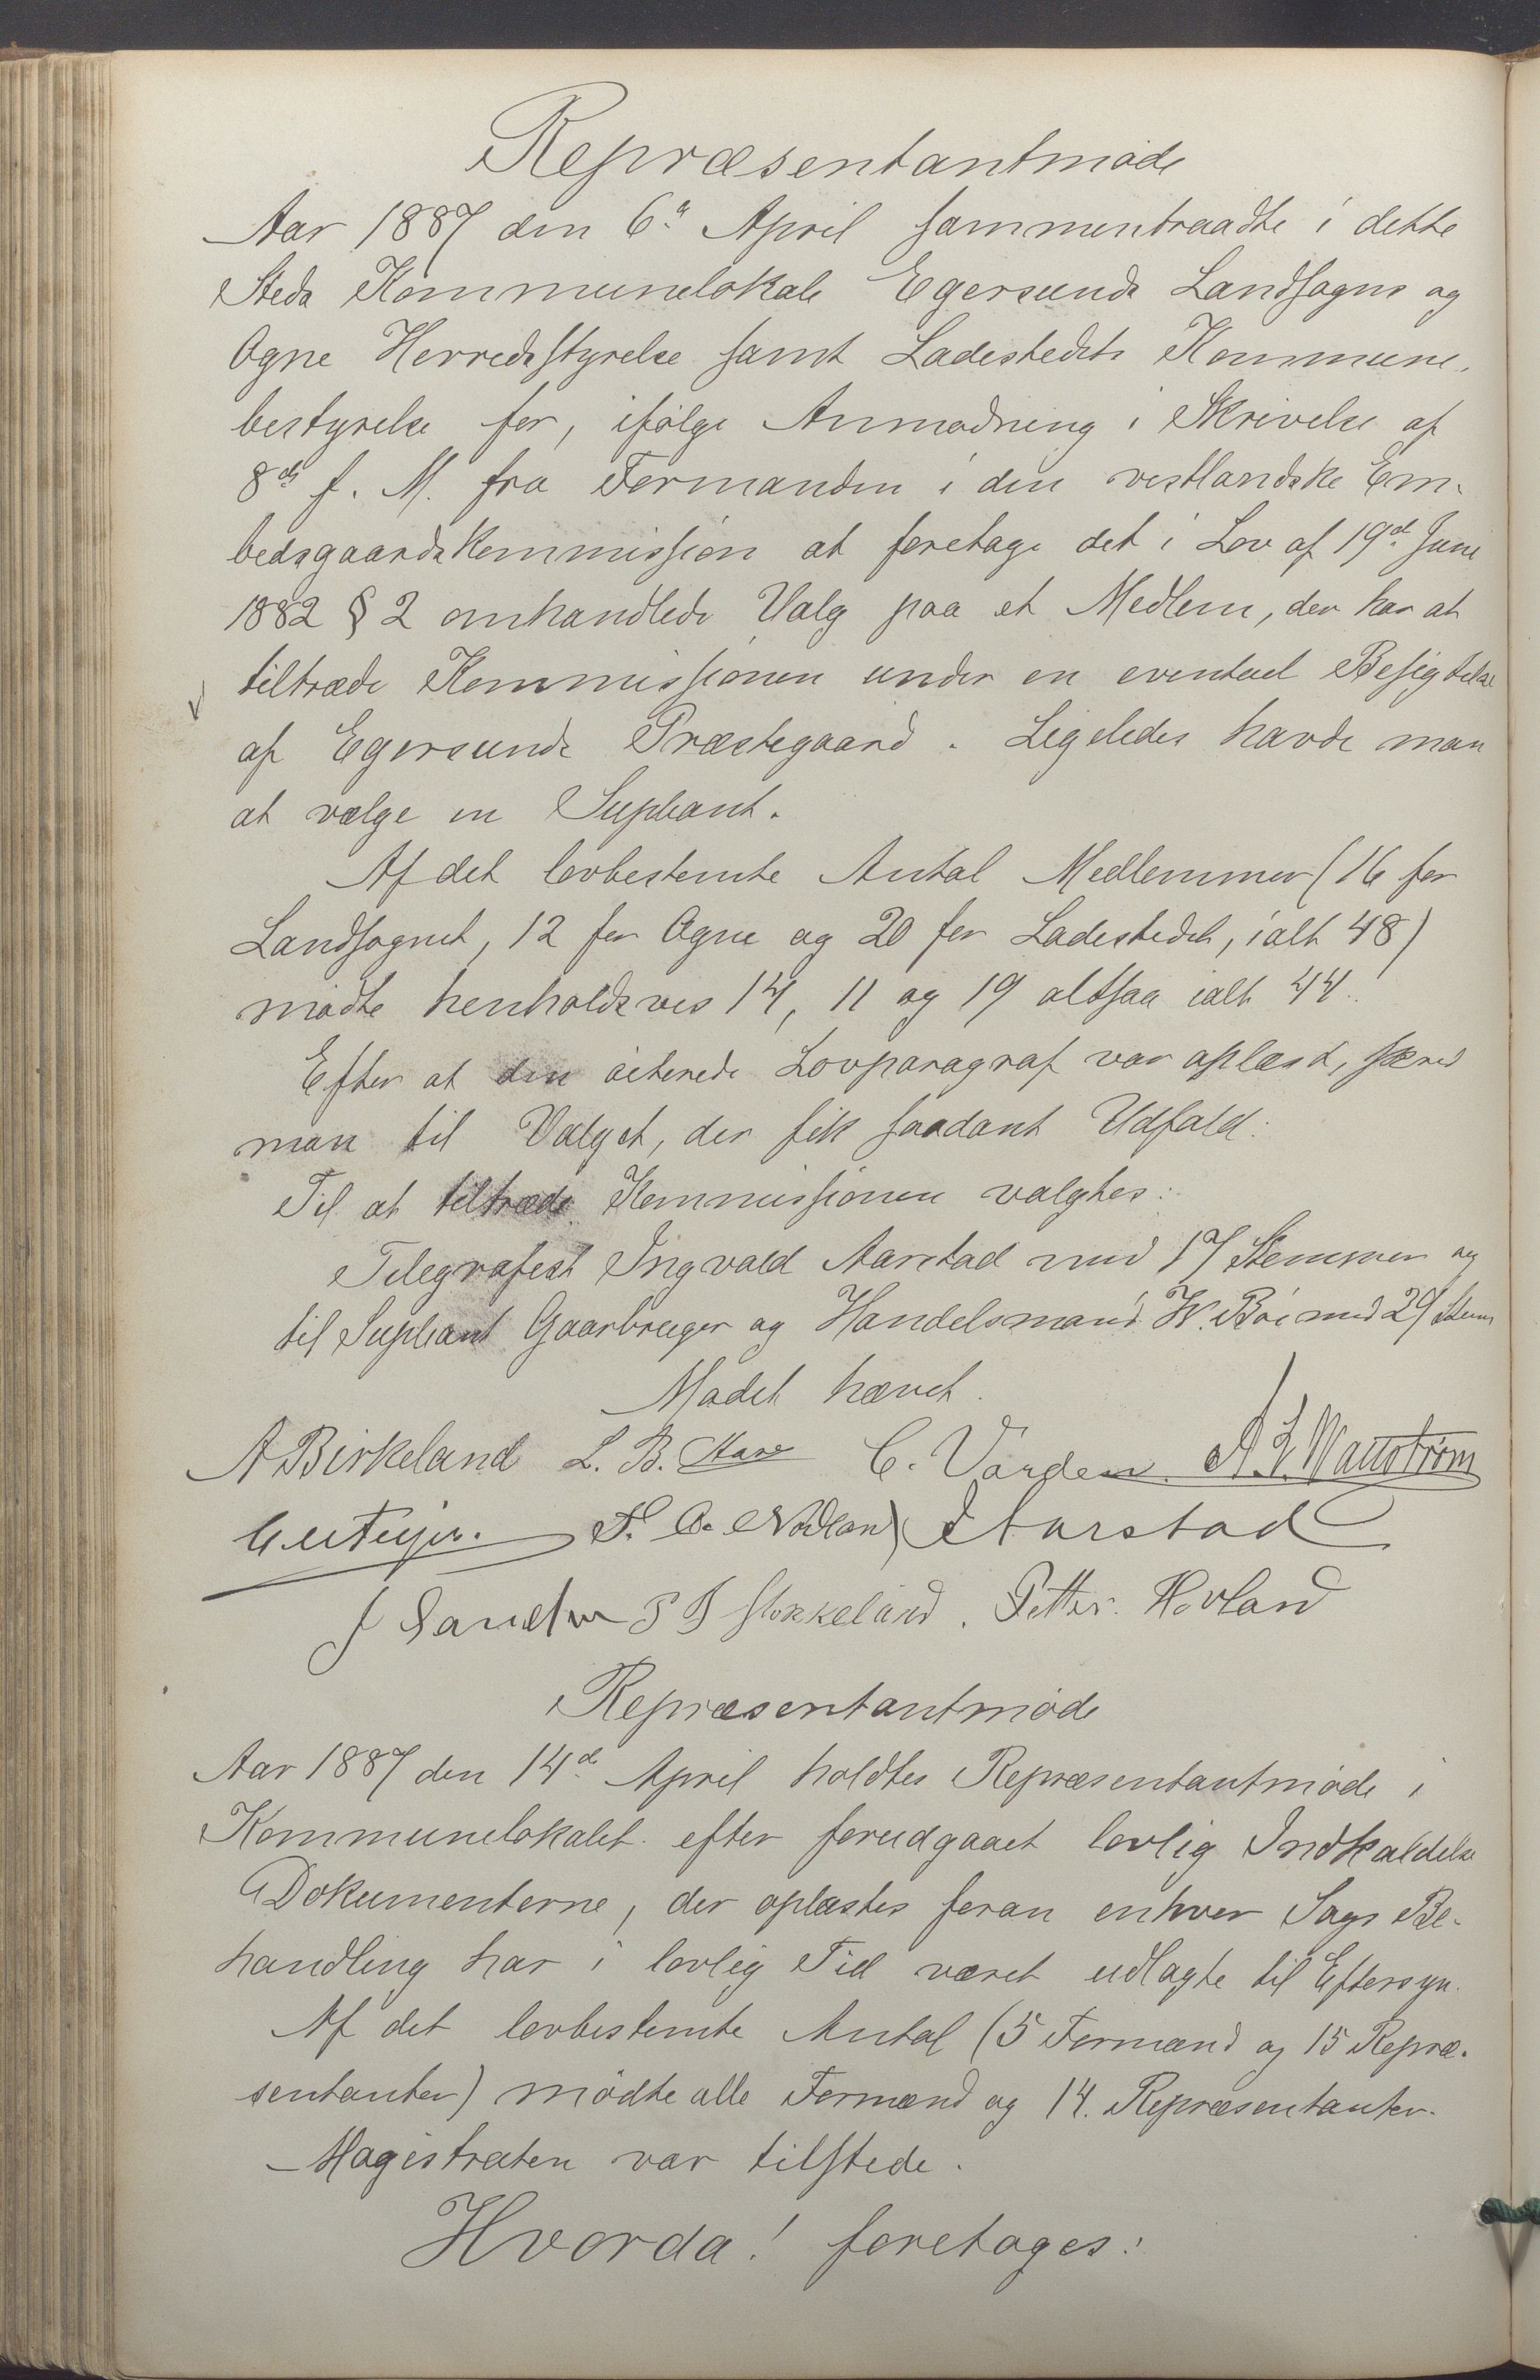 Repræsentantmøde
Aar 1887 den 6te April sammentraadte i dette
Steds Kommunelokale Egersunds Landsogns og
Ogne Herredsstyrelse samt Ladestedets Kommune-
bestyrelse for, ifølge Anmodning i Skrivelse af
8de f. M. fra Formanden i den vestlandske Em-
bedsgaardskommission at foretage det i Lov af 19de Juni
1882 § 2 omhandlede Valg paa et Medlem, der har at
tiltræde Kommissionen under en eventuel Besigtelse
af Egersunds Præstegaard. Ligeledes havde man
at vælge en Supleant.
Af det lovbestemte Antal Medlemmer (16 for
Landsognet, 12 for Ogne og 20 for Ladestedet, ialt 48)
mødte henholdsvis 14, 11 og 19 altsaa ialt 44.
Efter at den citerede Lovparagraf var oplæst, skred
man til Valget, der fik saadant Udfald:
Til at tiltræde Kommissionen valgtes:
Telegrafist Ingvald Aarstad med 17 Stemmer og
til Supleant Gaarbruger og Handelsmand W. Bøe med 29 Stem
Mødet hævet.
A Birkeland L. B. C. Varden. A. F. Wallstrøm
F. O. Nodland I Aarstad
J Sand P J Stokkeland. Petter. Hovland
Repræsentantmøde
Aar 1887 den 14de April holdtes Repræsentantmøde i
Kommunelokalet efter forudgaaet lovlig Indkaldelse
Dokumenterne, der oplæstes foran enhver Sags Be-
handling har i lovlig Tid været udlagte til Eftersyn.
Af det lovbestemte Antal (5 Formænd og 15 Repræ-
sentanter) mødte alle Formænd og 14. Repræsentanter.
Magistraten var tilstede.
Hvorda! foretages: